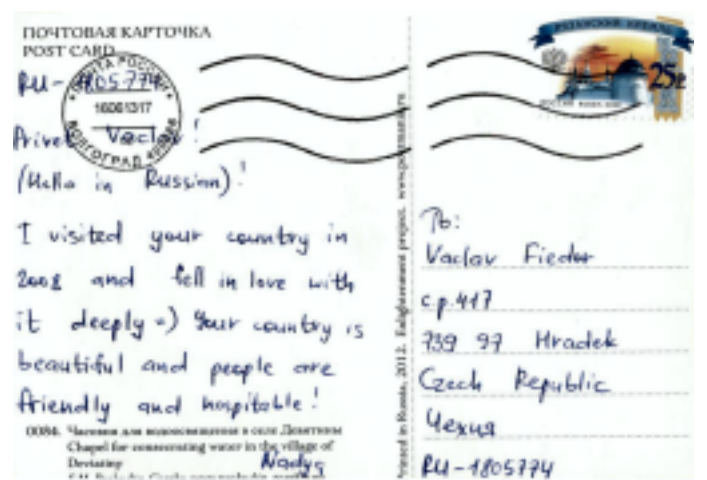 ПОЧТОВАЯ КАРТОЧКА
POST CARD
RU-1805774
ПОЧТА РОССИИ
16061317
ВОЛГОГРАД
Privet Vaclav!
(Hello in Russian)!
I visited your country in
2008 and fell in love with
it deeply =) Your country is
beautiful and people are
friendly and hospitable!
0084. Часовня для водоосвящения в селе Девятины
Chapel for consecrating water in the village of
Deviatiny
Nadya
Printed in Russia, 2012. Enlightenment project.
РЯЗАНСКИЙ КРЕМЛЬ
25р
РОССИЯ
To:
Vaclav Fiedor
c.p. 417
739 97 Hradek
Czech Republic
Чехия
RU-1805774